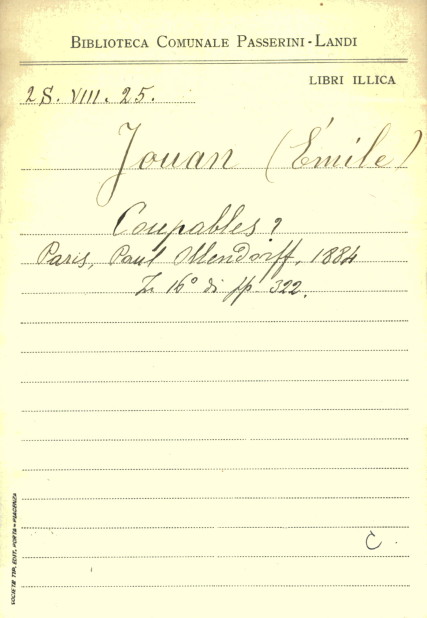 BIBLIOTECA COMUNALE PASSERINI-LANDI
LIBRI ILLICA
28. VIII. 25.
Jouan (Émile)
Coupables?
Paris, Paul Ollendorff, 1884
in 16° di pp. 322.
C.
SOCIETÀ TIP. EDIT. PORTA-PIACENZA